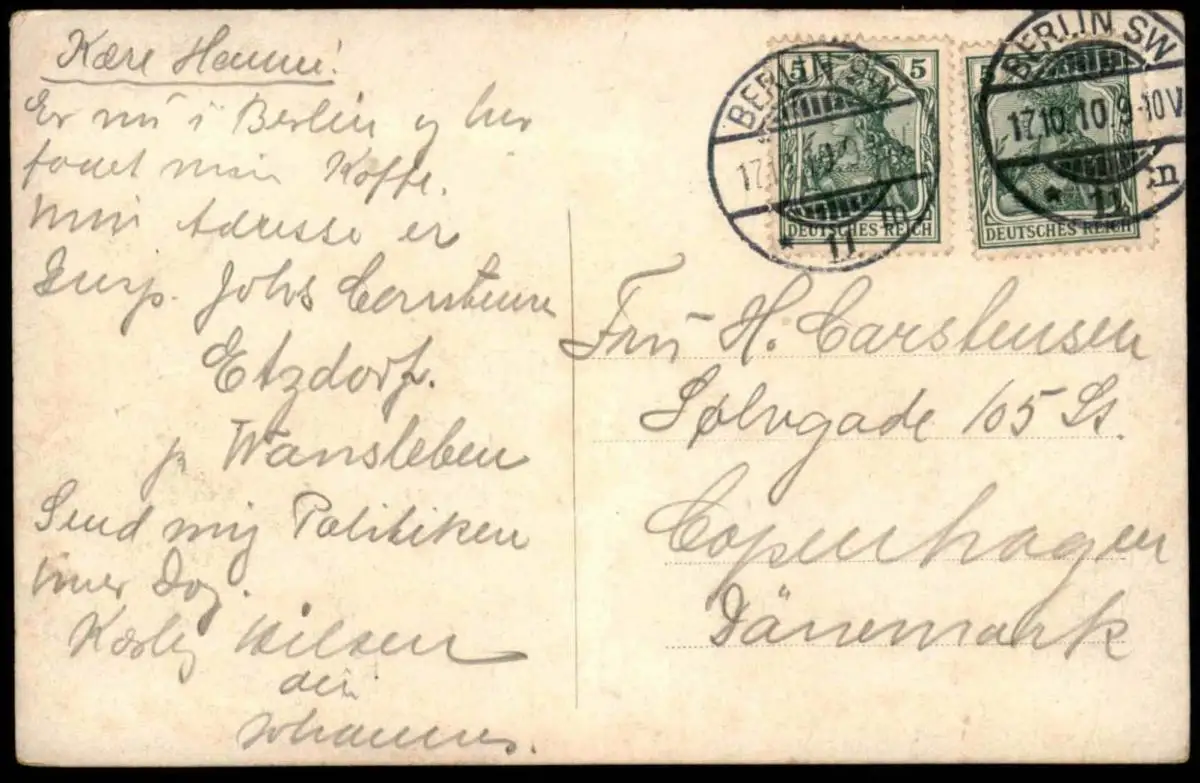 Kære Hanne!
Er nu i Berlin og har
faaet min Koffe.
Min Adresse er
Insp. Johs Carstensen
Etzdorf.
p Wansleben
Send mig Politiken
hver Dag.
Kærlig Hilsen
din
Johannes.
5 5
DEUTSCHES REICH
BERLIN SW
11
5
DEUTSCHES REICH
BERLIN SW
17.10.10.9-10V
* 11 n
Fru H. Carstensen
Sølvgade 105 St.
Copenhagen
Dänemark